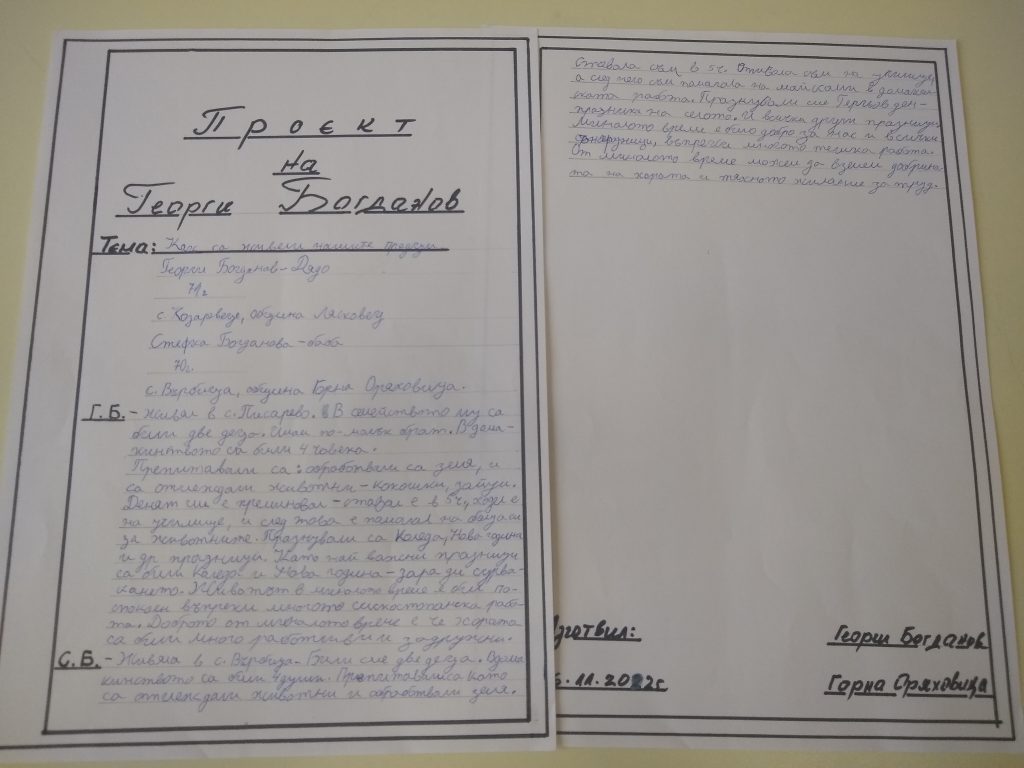 Проект
на
Георги Богданов
Тема: Как са живели нашите предци
Георги Богданов - Дядо
71г.
с. Козаревец, община Лясковец
Стефка Богданова - баба
70г.
с. Върбица, община Горна Оряховица.
Г.Б. - живял в с. Писарево. В семейството му са
били две деца. Имал по-малък брат. В дома-
кинството са били 4 човека.
Препитавали са: обработвали са земя, и
са отглеждали животни - кокошки, зайци.
Денят си е преминавал - ставал е в 5ч, ходел е
на училище, и след това е помагал на баща си
за животните. Празнували са Коледа, Нова година
и др. празници. Като най важни празници
са били Коледа и Нова година - заради сурва-
кането. Животът в миналото време е бил по-
спокоен въпреки многото селскостопанска рабо-
та. Доброто от миналото време е че хората
са били много работливи и задружни.
С.Б. - Живяла в с. Върбица. Били сме две деца. В дома
кинството са били 4 души. Препитавали са като
са отглеждали животни и обработвали земя.
Ставала съм в 5ч. Отивала съм на училище,
а след него съм помагала на майка ми в домакин-
ската работа. Празнували сме Гергьов ден -
празника на селото. И всички други празници.
Миналото време е било добро за нас и всички
задружни, въпреки многото тежка работа.
От миналото време можем да вземем добрина-
та на хората и тяхното желание за труд.
Изготвил: Георги Богданов
11.2022г Горна Оряховица